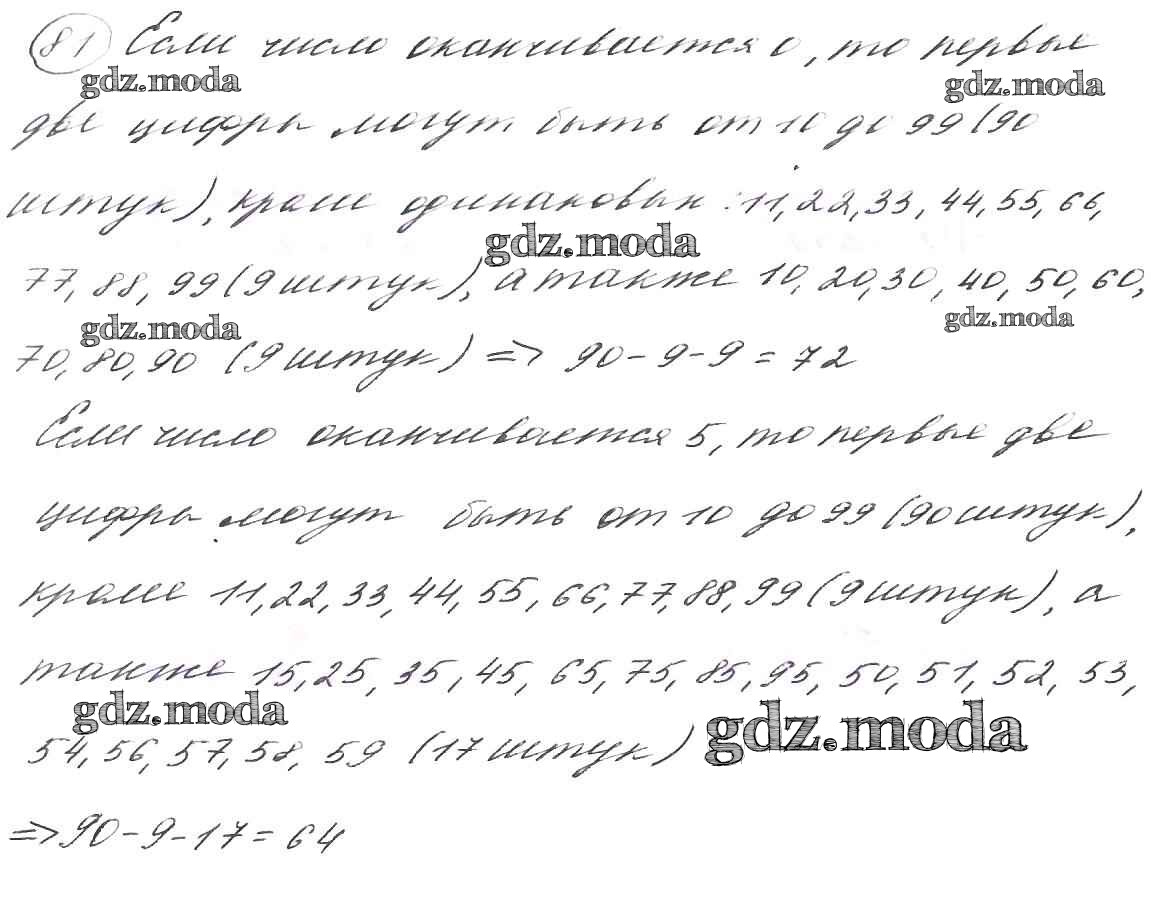 81 Если число оканчивается 0, то первые
gdz.moda gdz.moda
две цифры могут быть от 10 до 99 (90
штук), кроме одинаковых: 11, 22, 33, 44, 55, 66,
gdz.moda
77, 88, 99 (9 штук), а также 10, 20, 30, 40, 50, 60,
gdz.moda gdz.moda
70, 80, 90 (9 штук) => 90 - 9 - 9 = 72
Если число оканчивается 5, то первые две
цифры могут быть от 10 до 99 (90 штук),
кроме 11, 22, 33, 44, 55, 66, 77, 88, 99 (9 штук), а
также 15, 25, 35, 45, 65, 75, 85, 95, 50, 51, 52, 53,
gdz.moda gdz.moda
54, 56, 57, 58, 59 (17 штук)
=> 90 - 9 - 17 = 64